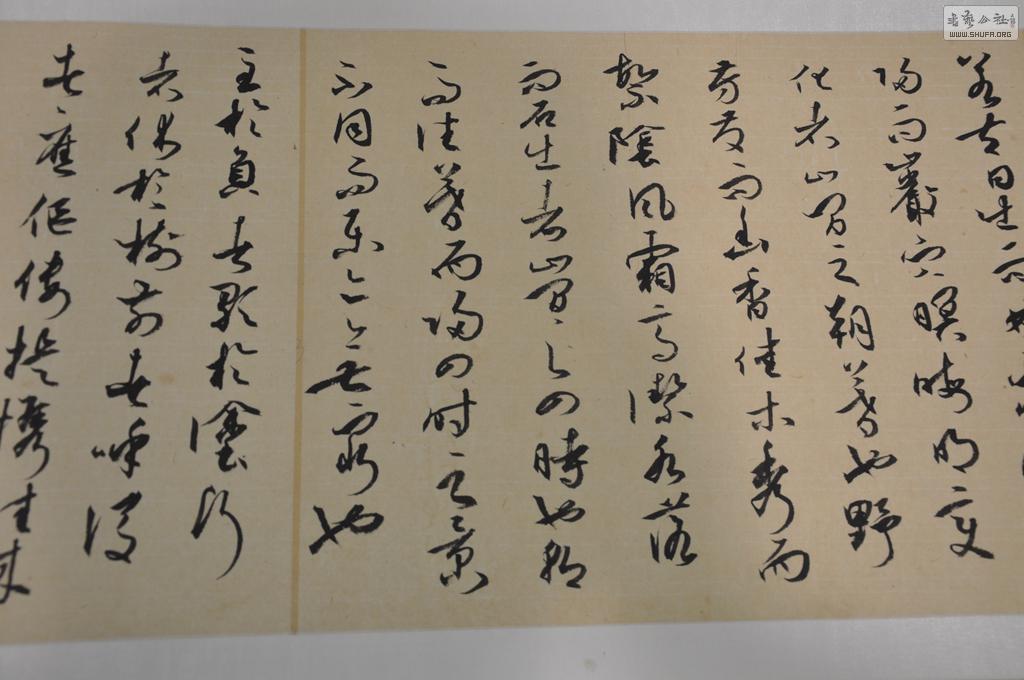 若夫日出而林
歸而巖穴暝晦明變
化者山間之朝暮也野
芳發而幽香佳木秀而
繁陰風霜高潔水落
而石出者山間之四時也朝
而往暮而歸四時之景
不同而樂亦無窮也
至於負者歌於塗行
者休於樹前者呼後
者應傴僂提攜往來
书艺公社
WWW.SHUFA.ORG